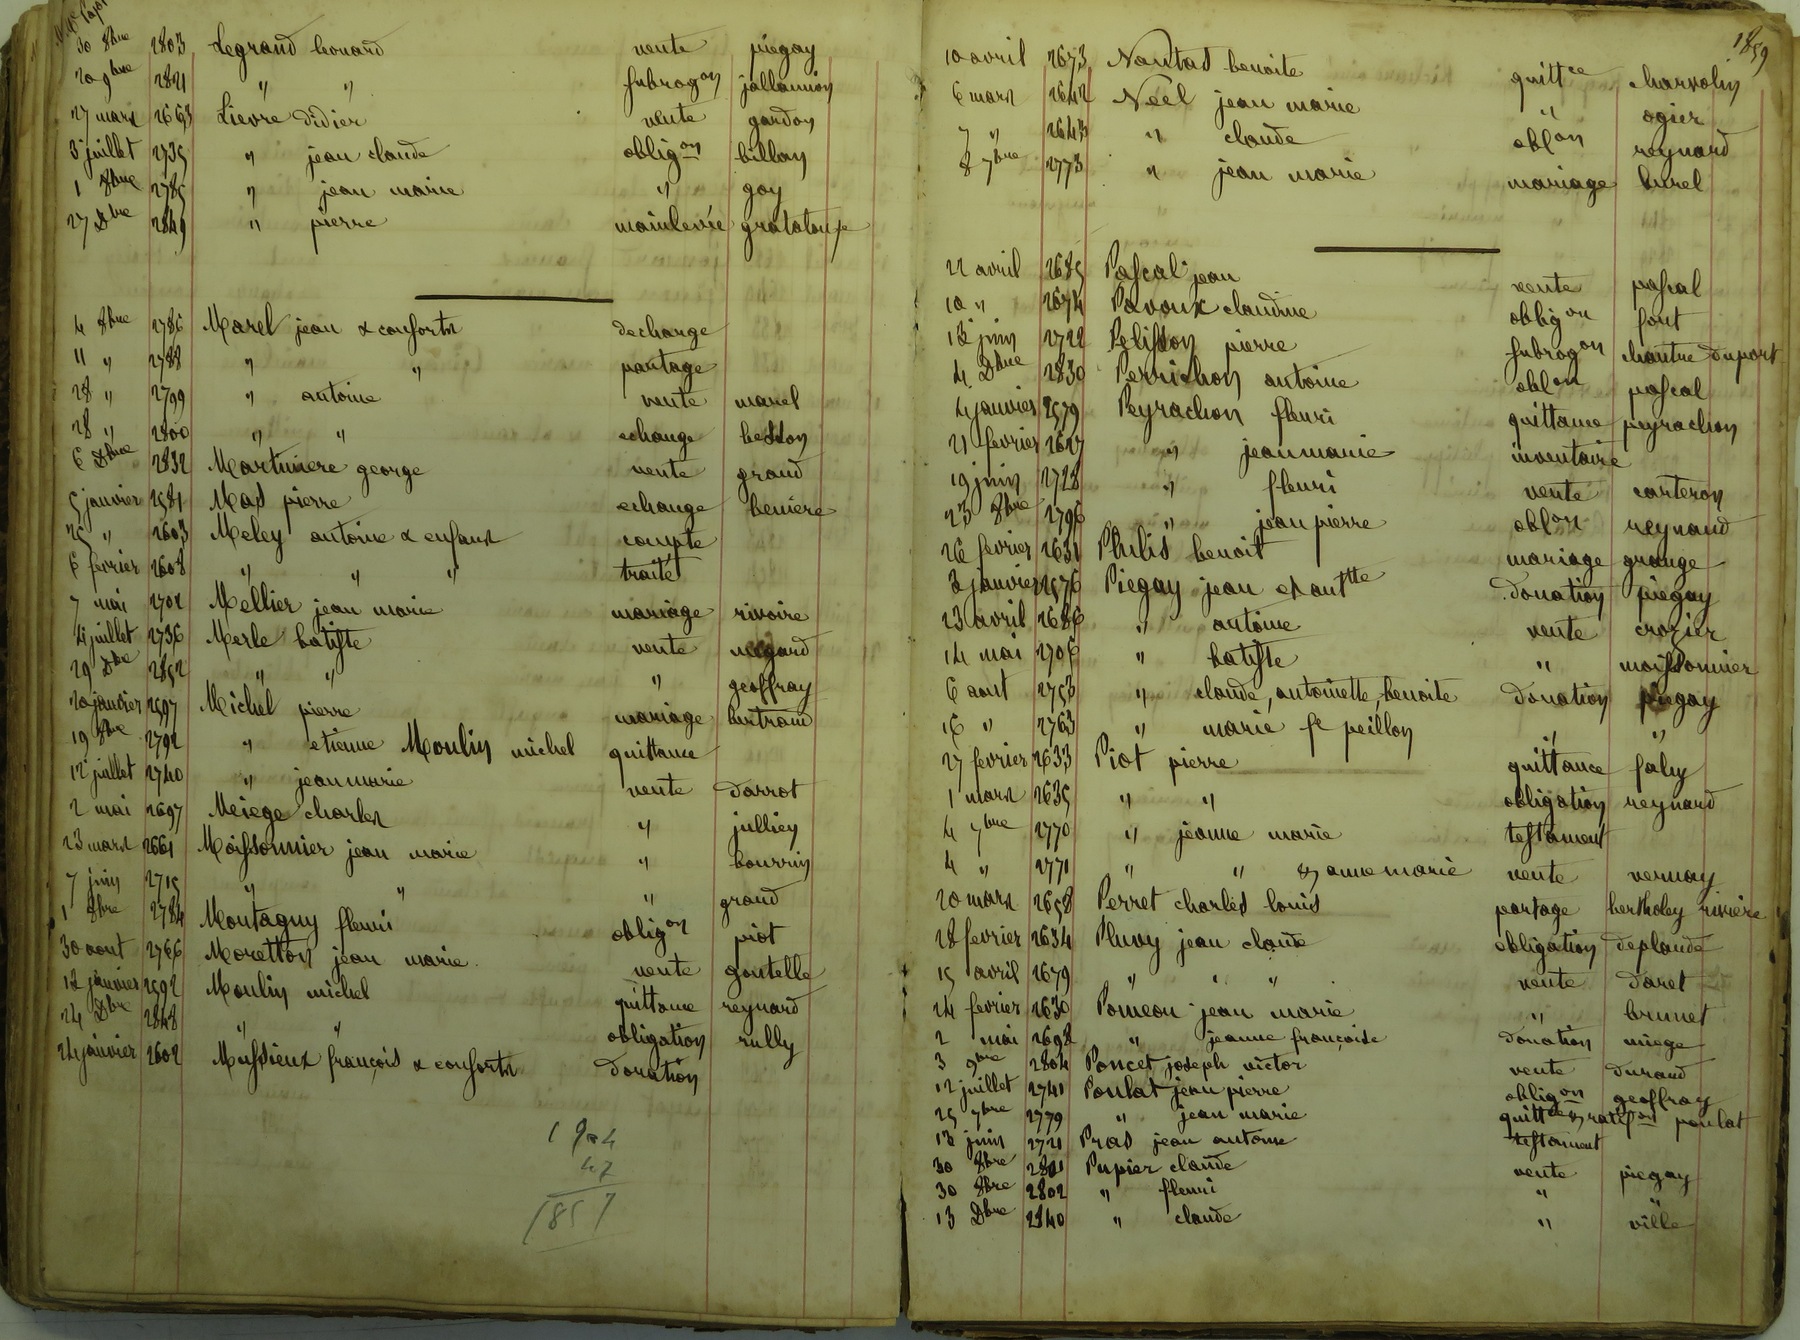 30 8bre 2803 Legrand leonard vente piegay
20 9bre 2821 " " subrogon jallamion
27 mars 2663 Lievre didier vente gardon
3 juillet 2735 " jean claude obligon billon
1 8bre 2785 " jean marie " goy
27 Dbre 2849 " pierre mainlevée grataloupe
4 8bre 2786 Marel jean & consorts dechange
11 " 2788 " " partage
28 " 2799 " antoine vente marel
28 " 2800 " " echange besson
6 Dbre 2832 Martiniere george vente grand
5 janvier 2581 Mas pierre echange beniere
25 " 2603 Meley antoine & enfans compte
6 fevrier 2608 " " " traité
7 mai 2702 Mellier jean marie mariage rivoire
4 juillet 2736 Merle batiste vente
29 Dbre 2852 " " " geoffray
20 janvier 2597 Michel pierre mariage bertrand
19 8bre 2792 " etienne Moulin michel quittance
12 juillet 2740 " jean marie vente darrot
2 mai 2697 Meiege charles " jullien
23 mars 2661 Moissonnier jean marie " bourrin
7 juin 2715 " " " grand
1 8bre 2784 Montagny fleuri obligon piot
30 aout 2766 Moretton jean marie vente goutelle
12 janvier 2592 Moulin michel quittance reynard
24 Dbre 2848 " " obligation rully
24 janvier 2602 Mussieux françois & consorts donation
1904
47
1857
1859
10 avril 2673 Nantas benoite quittce charvolin
6 mars 2642 Néel jean marie " ogier
7 " 2643 " claude oblon reynard
8 7bre 2773 " jean marie mariage burel
22 avril 2685 Pascal jean vente pascal
10 " 2674 Pavoux claudine obligon font
13 juin 2722 Pelisson pierre subrogon chantre duport
4 Dbre 2830 Perrichon antoine oblon pascal
4 janvier 2579 Peyrachon fleuri quittance peyrachon
21 fevrier 2627 " jean marie inventaire
19 juin 2728 " fleuri vente carteron
23 8bre 2796 " jean pierre oblon reynard
26 fevrier 2631 Philis benoit mariage grange
3 janvier 2576 Piegay jean et antte donation piegay
23 avril 2686 " antoine vente crozier
14 mai 2706 " batiste " moissonnier
6 aout 2753 " claude, antoinette, benoite donation piegay
16 " 2763 " marie fe peillon " "
27 fevrier 2633 Piot pierre quittance faly
1 mars 2635 " " obligation reynard
4 7bre 2770 " jeanne marie testament
4 " 2771 " " & anne marie vente vernay
20 mars 2658 Perret charles louis partage bertholey riviere
28 fevrier 2634 Pluvy jean claude obligation deplaude
15 avril 2679 " " " vente daret
24 fevrier 2630 Pomeon jean marie " brunet
2 mai 2698 " jeanne françoise donation miege
3 9bre 2804 Poncet joseph victor vente durand
12 juillet 2741 Poulat jean pierre obligon geoffray
25 7bre 2779 " jean marie quittce & ratifon poulat
13 juin 2721 Pras jean antoine testament
30 8bre 2801 Pupier claude vente piegay
30 8bre 2802 " fleuri " "
13 Dbre 2840 " claude " ville